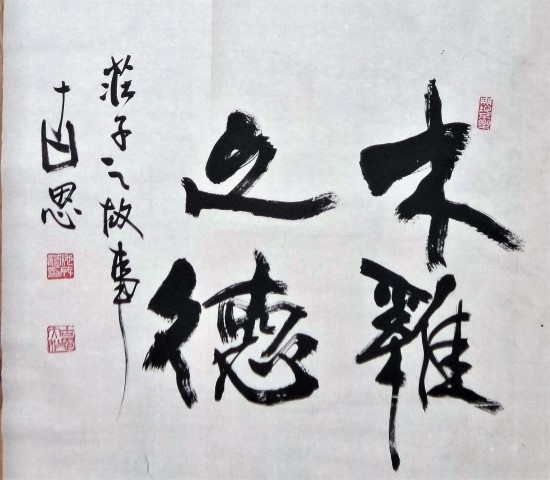 木雞
之德
莊子之故事
思